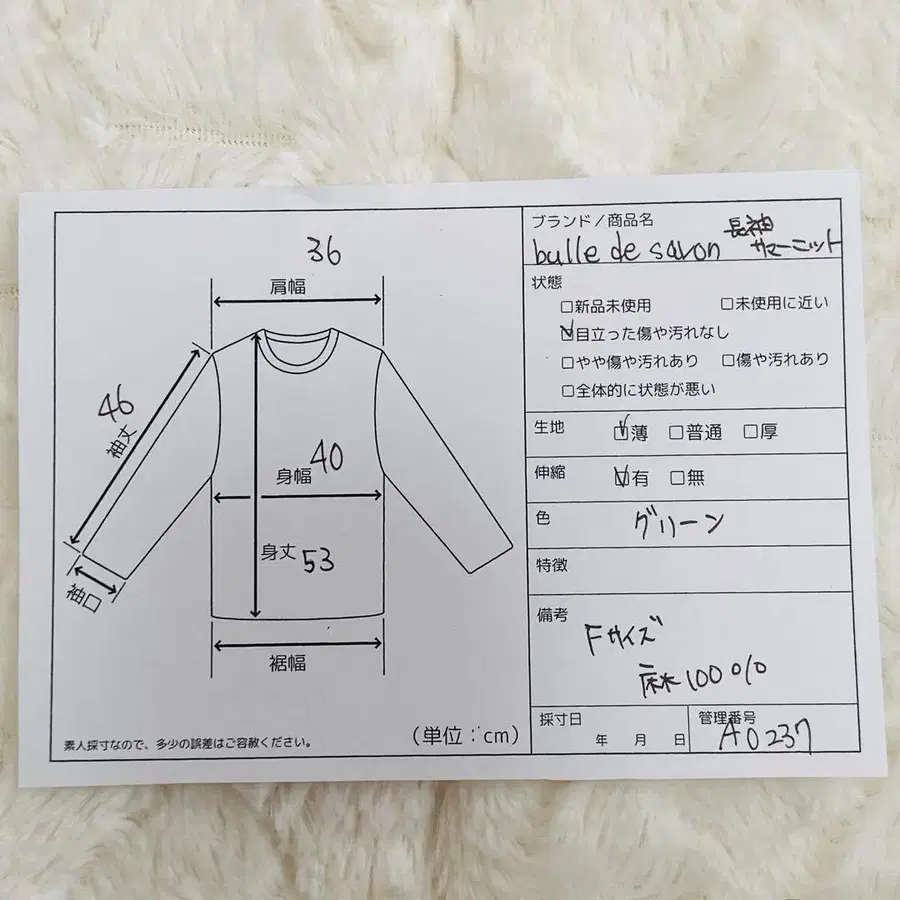 36
肩幅
46
袖丈
身幅 40
身丈 53
袖口
裾幅
素人採寸なので、多少の誤差はご容赦ください。
(単位：cm)
ブランド/商品名
bulle de savon 長袖
サマーニット
状態
□新品未使用 □未使用に近い
☑目立った傷や汚れなし
□やや傷や汚れあり □傷や汚れあり
□全体的に状態が悪い
生地 ☑薄 □普通 □厚
伸縮 ☑有 □無
色 グリーン
特徴
備考
Fサイズ
麻100%
採寸日
年 月 日
管理番号
A0237